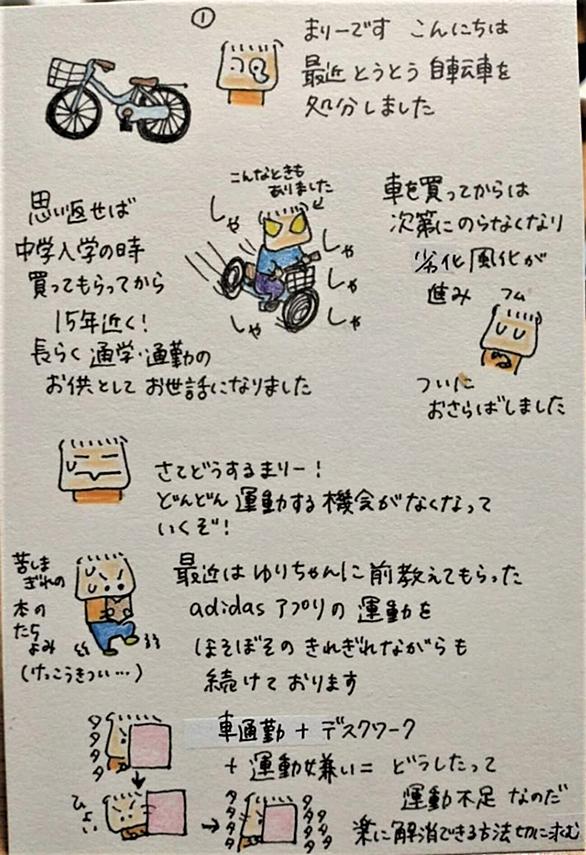 ①
まりーです こんにちは
最近 とうとう 自転車を
処分しました
こんなときも
ありました
しゃ
しゃ
しゃ
しゃ
しゃ
思い返せば
中学入学の時
買ってもらってから
15年近く!
長らく 通学・通勤の
お供として お世話になりました
車を買ってからは
次第にのらなくなり
劣化風化が
進み
フム
ついに
おさらばしました
さてどうするまりー!
どんどん 運動する機会がなくなって
いくぞ!
苦しま
ぎれの
本の
たち
よみ
(けっこうきつい…)
最近は ゆりちゃんに 前教えてもらった
adidas アプリの 運動を
ほそぼその きれぎれながらも
続けて おります
タタタタ
車通勤 + デスクワーク
+ 運動嫌い = どうしたって
運動不足 なのだ
ひょい
タタタタ
タタタタ
楽に解消できる方法切に求む